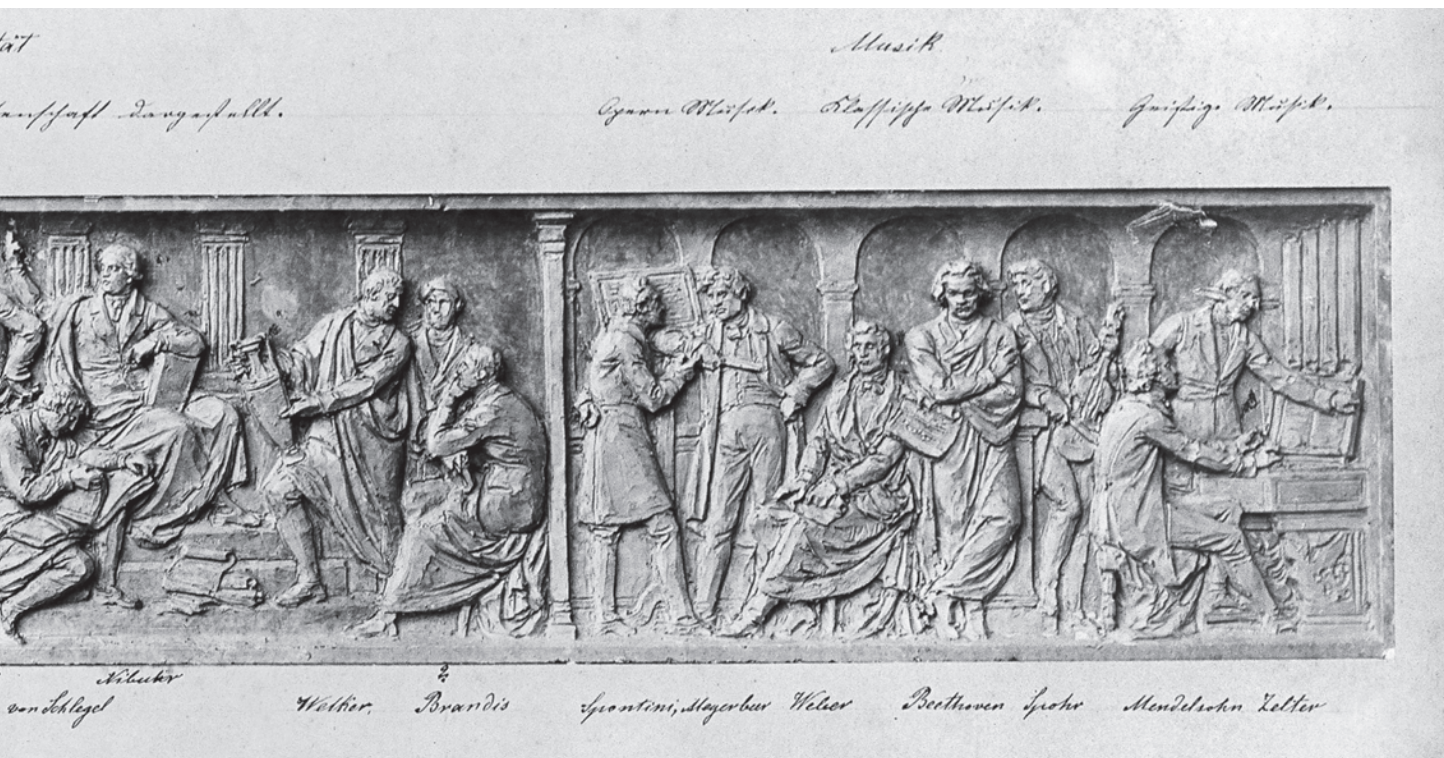 ät Musik
enschaft dargestellt. Opern Musik. Klassische Musik. Geistige Musik.
Nibuhr ?
von Schlegel Welker, Brandis Spontini, Meyerbeer Weber Beethoven Spohr Mendelsohn Zelter